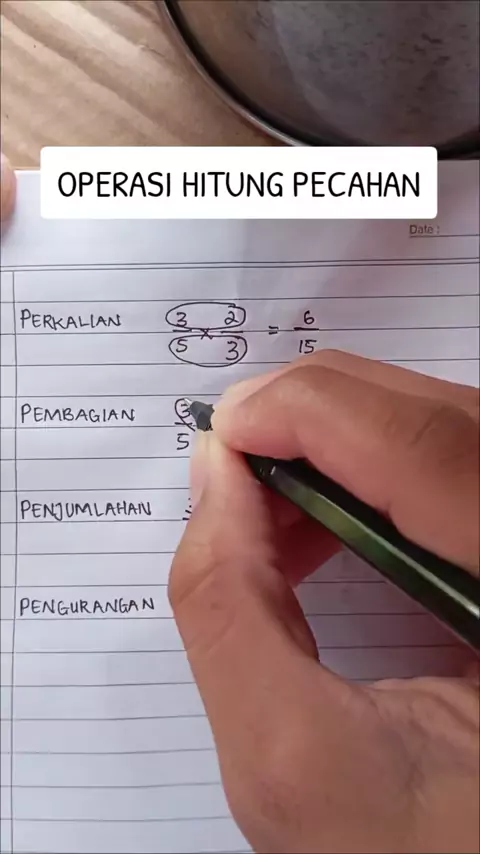 OPERASI HITUNG PECAHAN
Date :
PERKALIAN 3/5 × 2/3 = 6/15
PEMBAGIAN 3/5
PENJUMLAHAN
PENGURANGAN